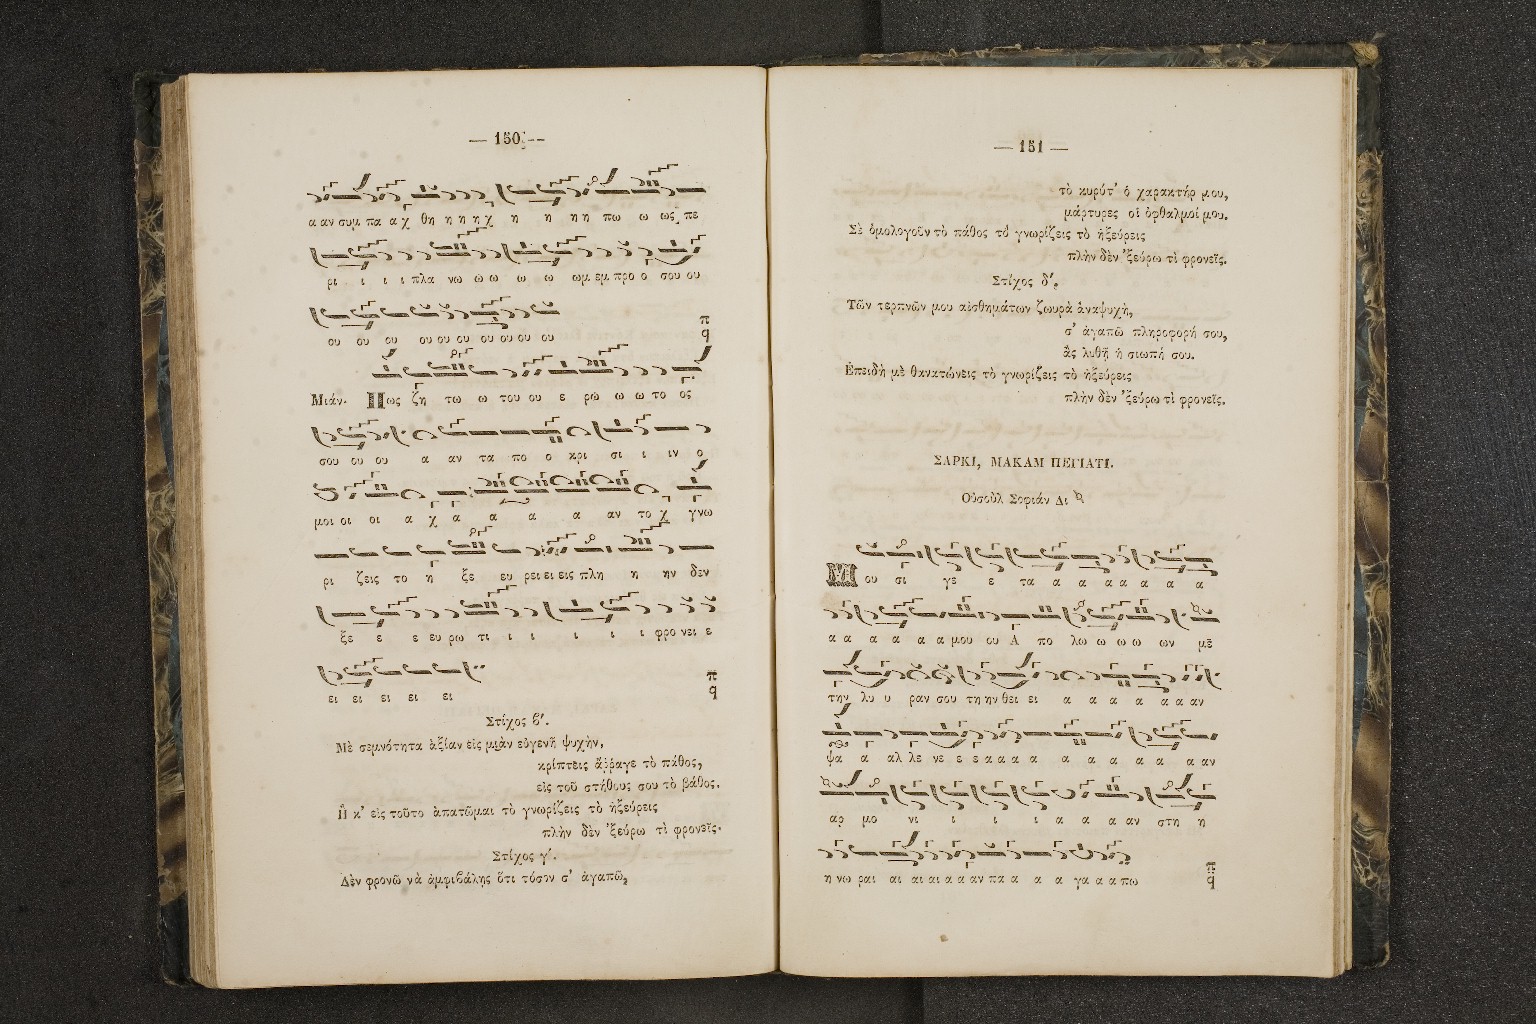 — 150 —
α αν συμ πα α χ θη η η η χ η η η η πω ω ως πε
ρι ι ι ι πλα νω ω ω ω ω ωμ εμ προ ο σου ου
ου ου ου ου ου ου ου ου ου
π
q
Μιάν. Πως ζη τω ω του ου ε ρω ω ω το ος
σου ου ου α αν τα πο ο κρι σι ι ιν ο
μοι οι οι α χ α α α α αν το χ γνω
ρι ζεις το η ξε ευ ρει ει εις πλη η ην δεν
ξε ε ε ευ ρω τι ι ι ι ι ι φρο νει ε
ει ει ει ει ει
π
q
Στίχος β΄.
Μὲ σεμνότητα ἀξίαν εἰς μιὰν εὐγενῆ ψυχὴν,
κρίπτεις ἄῤῥαγε τὸ πάθος,
εἰς τοῦ στήθους σου τὸ βάθος.
Ἢ κ' εἰς τοῦτο ἀπατῶμαι τὸ γνωρίζεις τὸ ἠξεύρεις
πλὴν δὲν 'ξεύρω τὶ φρονεῖς.
Στίχος γ΄.
Δὲν φρονῶ νὰ ἀμφιβάλης ὅτι τόσον σ' ἀγαπῶ,
— 151 —
τὸ κυρύτ' ὁ χαρακτήρ μου,
μάρτυρες οἱ ὀφθαλμοί μου.
Σὲ ὁμολογοῦν τὸ πάθος τὸ γνωρίζεις τὸ ἠξεύρεις
πλὴν δὲν 'ξεύρω τὶ φρονεῖς.
Στίχος δ΄.
Τῶν τερπνῶν μου αἰσθημάτων ζωυρὰ ἀναψυχὴ,
σ' ἀγαπῶ πληροφορή σου,
ἂς λυθῇ ἡ σιωπή σου.
Ἐπειδὴ μὲ θανατώνεις τὸ γνωρίζεις τὸ ἠξεύρεις
πλὴν δὲν 'ξεύρω τὶ φρονεῖς.
ΣΑΡΚΙ, ΜΑΚΑΜ ΠΕΓΙΑΤΙ.
Οὐσοὺλ Σοφιάν Δι
Μ ου σι γε ε τα α α α α α α α
α α α α α α μου ου Α πο λω ω ω ω ων με
την λυ υ ραν σου τη ην θει ει α α α α α α αν
ψα α αλ λε νε ε ε α α α α α α α α α αν
αρ μο νι ι ι ι α α α αν στη η
η νω ραι αι αι αι α α αν πα α α α γα α α πω
π
q